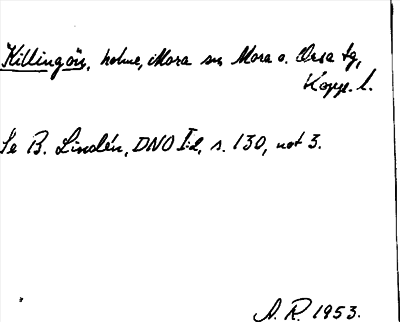 Killingön, holme, Mora sn Mora o. Orsa tg,
Kopp. l.
Se B. Lindén, DNO I:2, s. 130, not 3.
A. R. 1953.